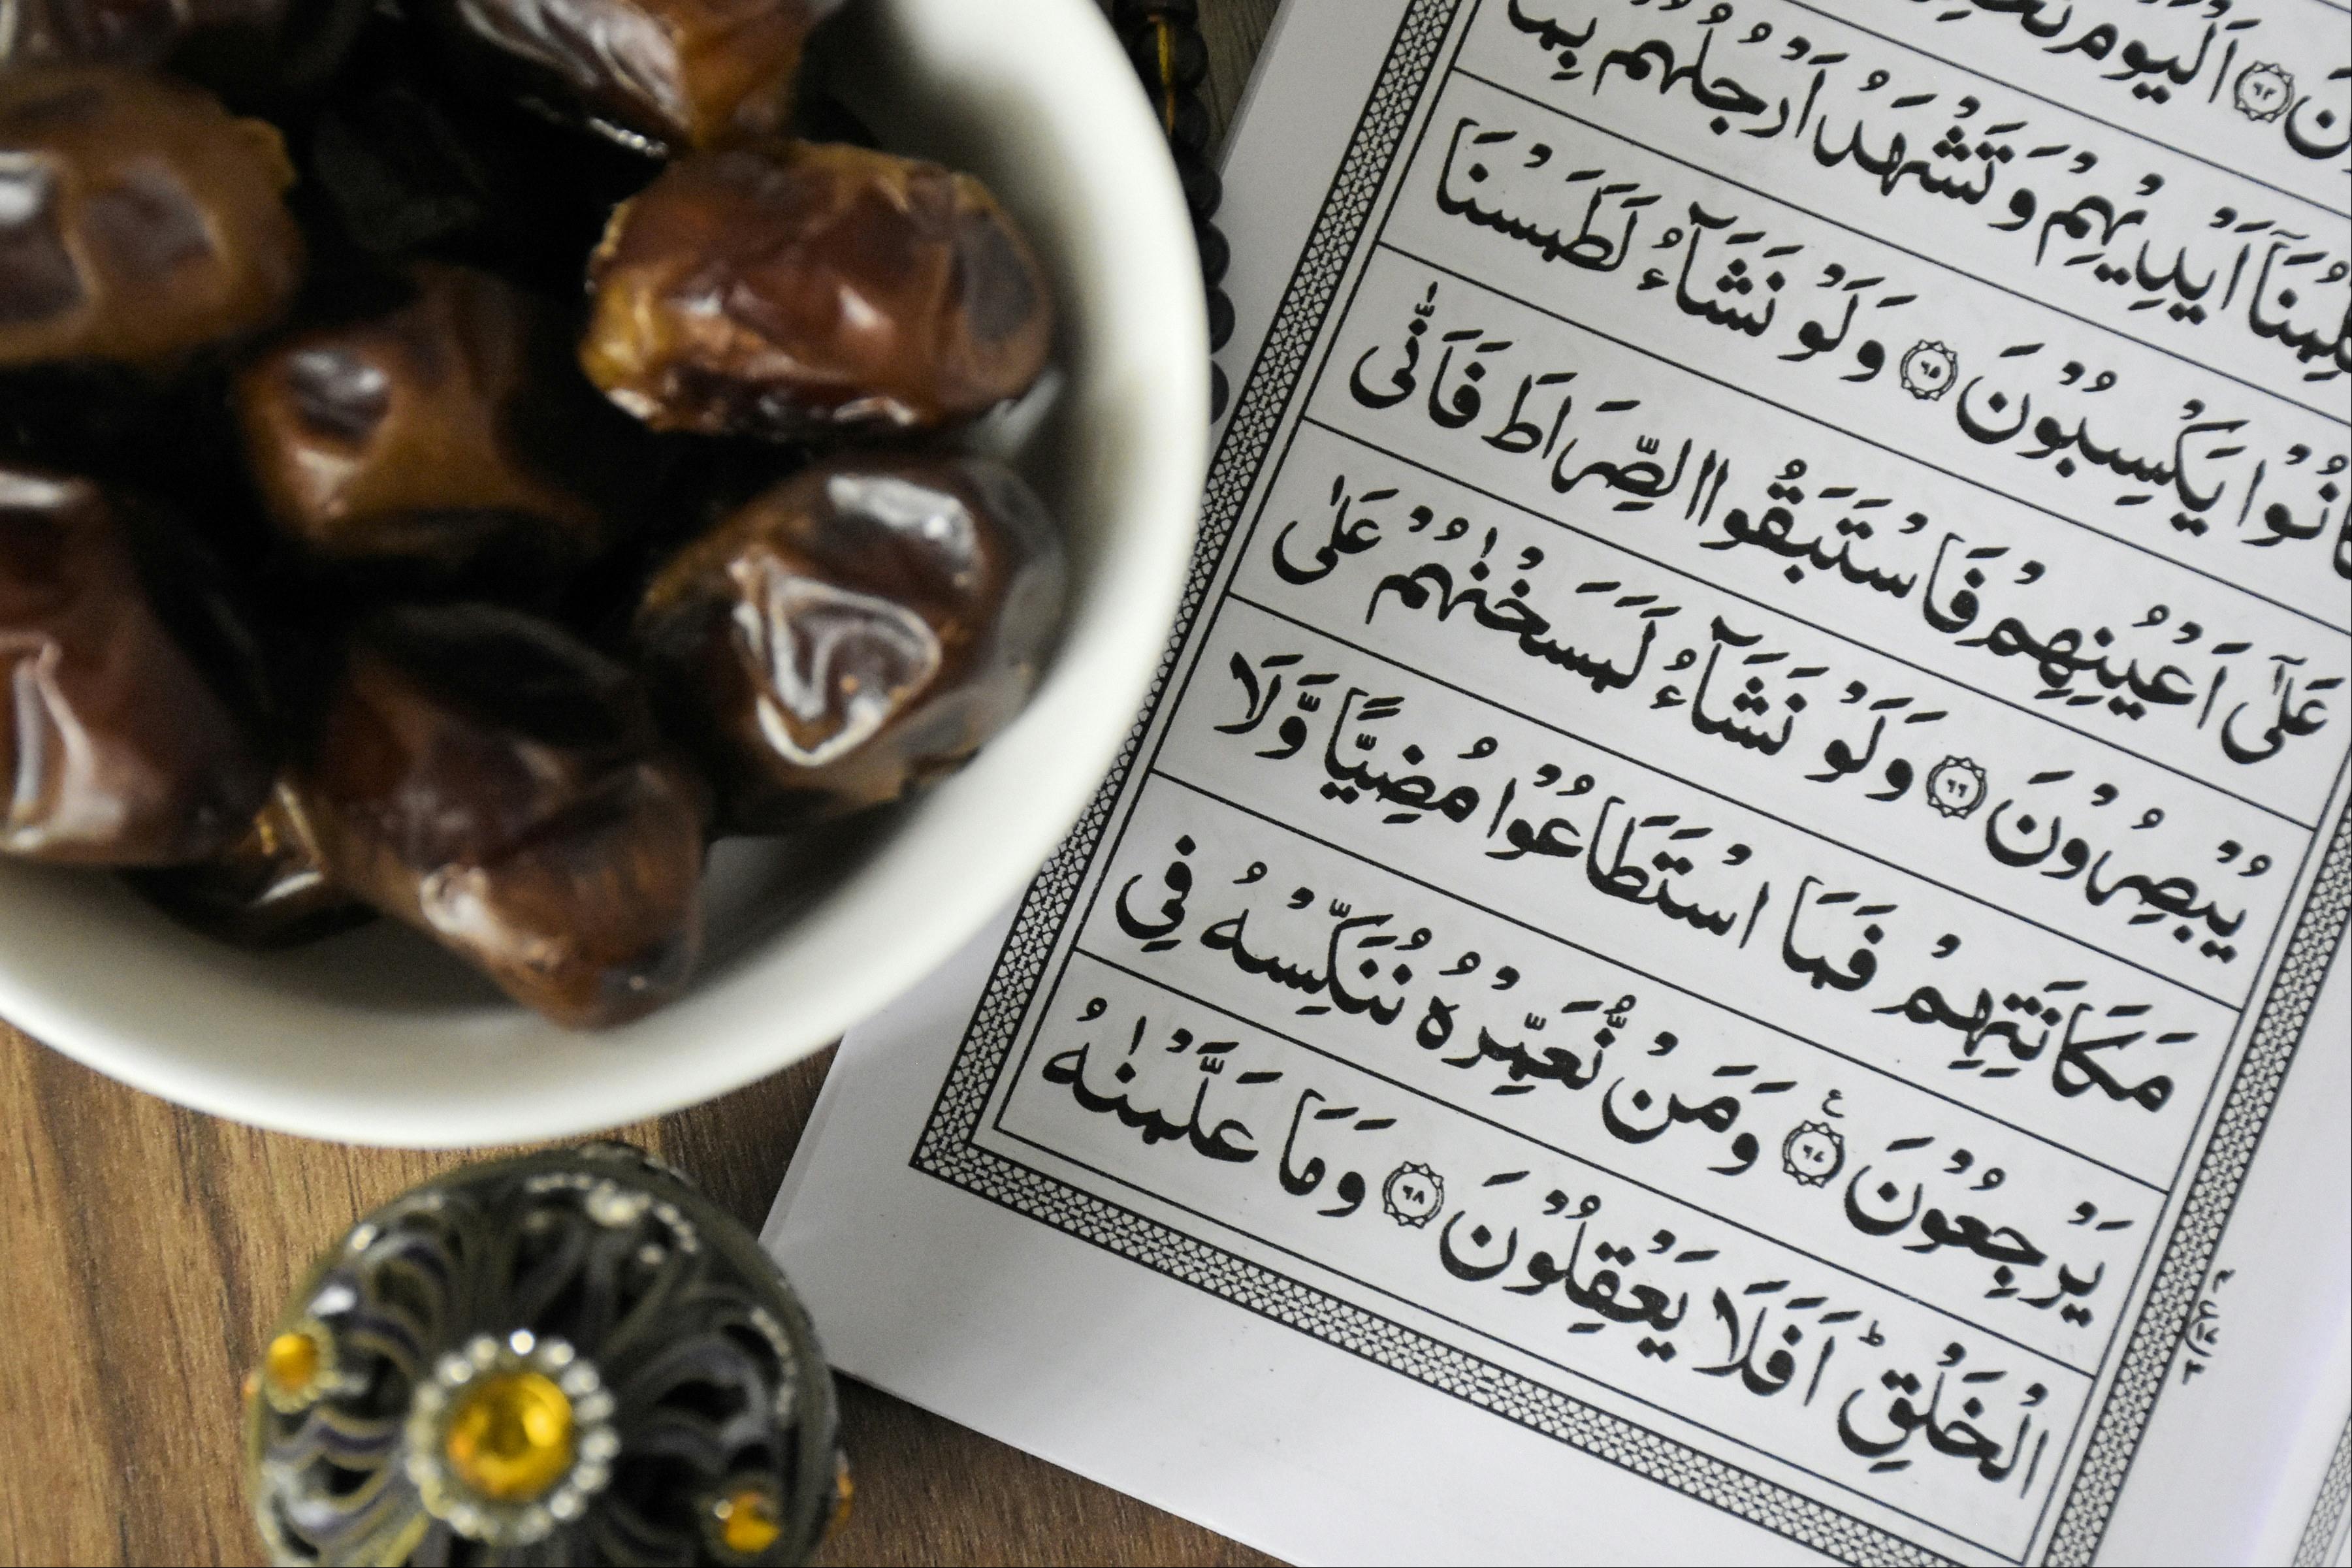 اَلْيَوْمَ ﴿٦٤﴾
اَيْدِيْهِمْ وَتَشْهَدُ اَرْجُلُهُمْ بِمَا
كَانُوْا يَكْسِبُوْنَ ﴿٦٥﴾ وَلَوْ نَشَآءُ لَطَمَسْنَا
عَلٰٓى اَعْيُنِهِمْ فَاسْتَبَقُوا الصِّرَاطَ فَاَنّٰى
يُبْصِرُوْنَ ﴿٦٦﴾ وَلَوْ نَشَآءُ لَمَسَخْنٰهُمْ عَلٰى
مَكَانَتِهِمْ فَمَا اسْتَطَاعُوْا مُضِيًّا وَّلَا
يَرْجِعُوْنَ ﴿٦٧﴾ۧ وَمَنْ نُّعَمِّرْهُ نُنَكِّسْهُ فِى
الْخَلْقِؕ اَفَلَا يَعْقِلُوْنَ ﴿٦٨﴾ وَمَا عَلَّمْنٰهُ